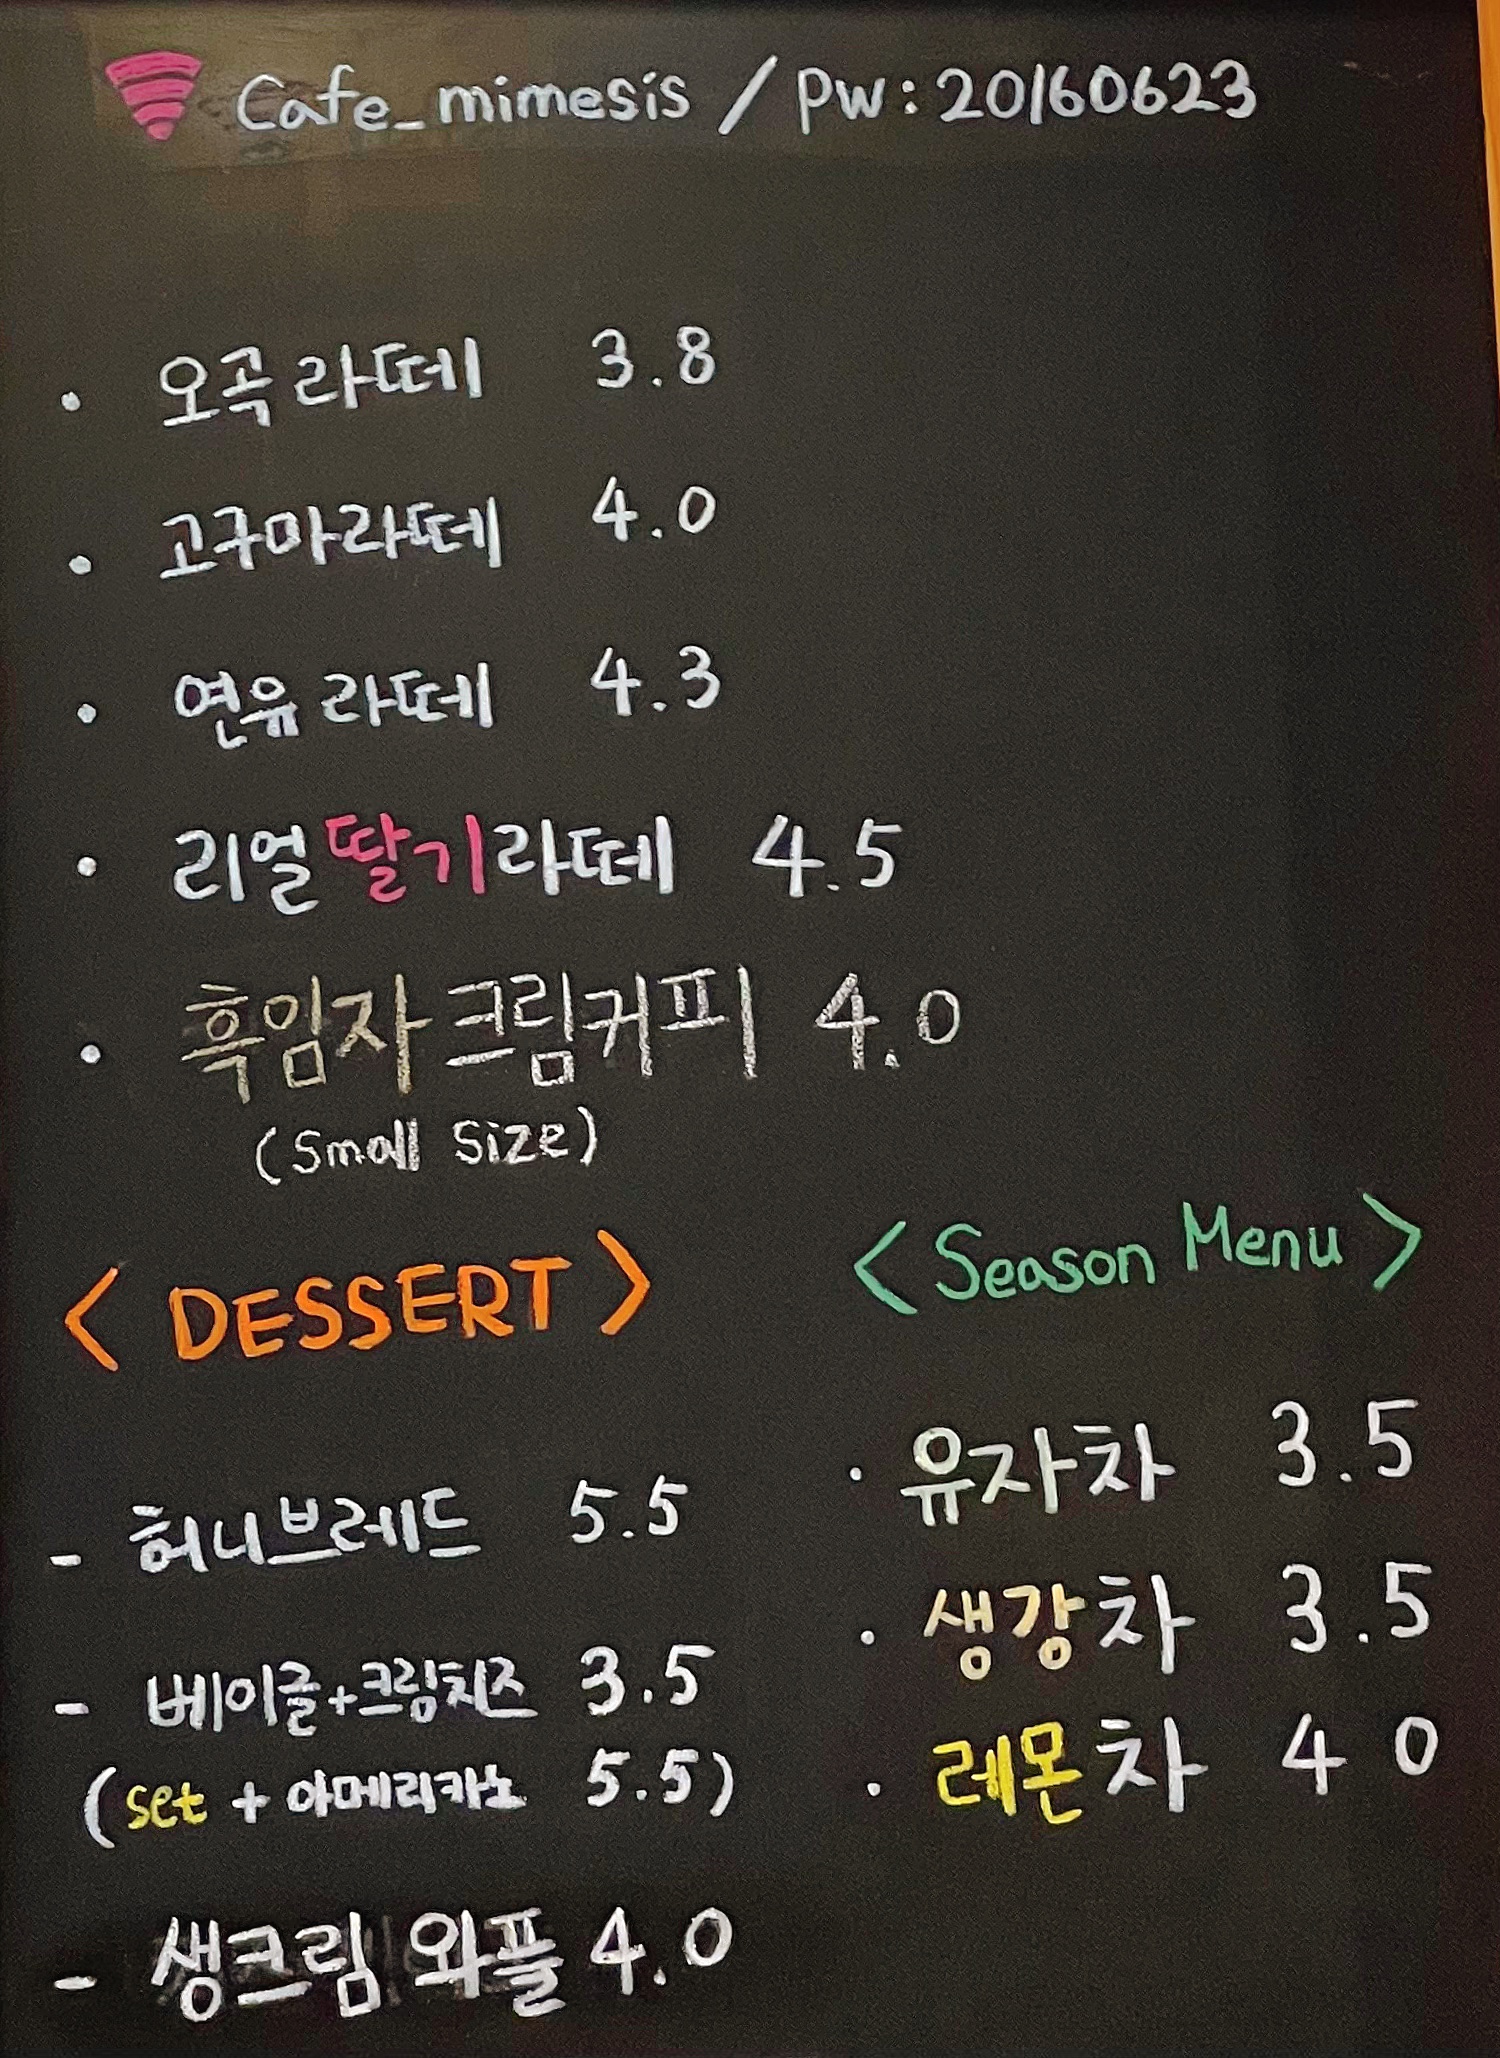 Cafe_mimesis / PW: 20160623
· 오곡라떼 3.8
· 고구마라떼 4.0
· 연유라떼 4.3
· 리얼딸기라떼 4.5
· 흑임자크림커피 4.0
(Small Size)
< DESSERT >
- 허니브레드 5.5
- 베이글+크림치즈 3.5
(set + 아메리카노 5.5)
- 생크림 와플 4.0
< Season Menu >
· 유자차 3.5
· 생강차 3.5
· 레몬차 4 0